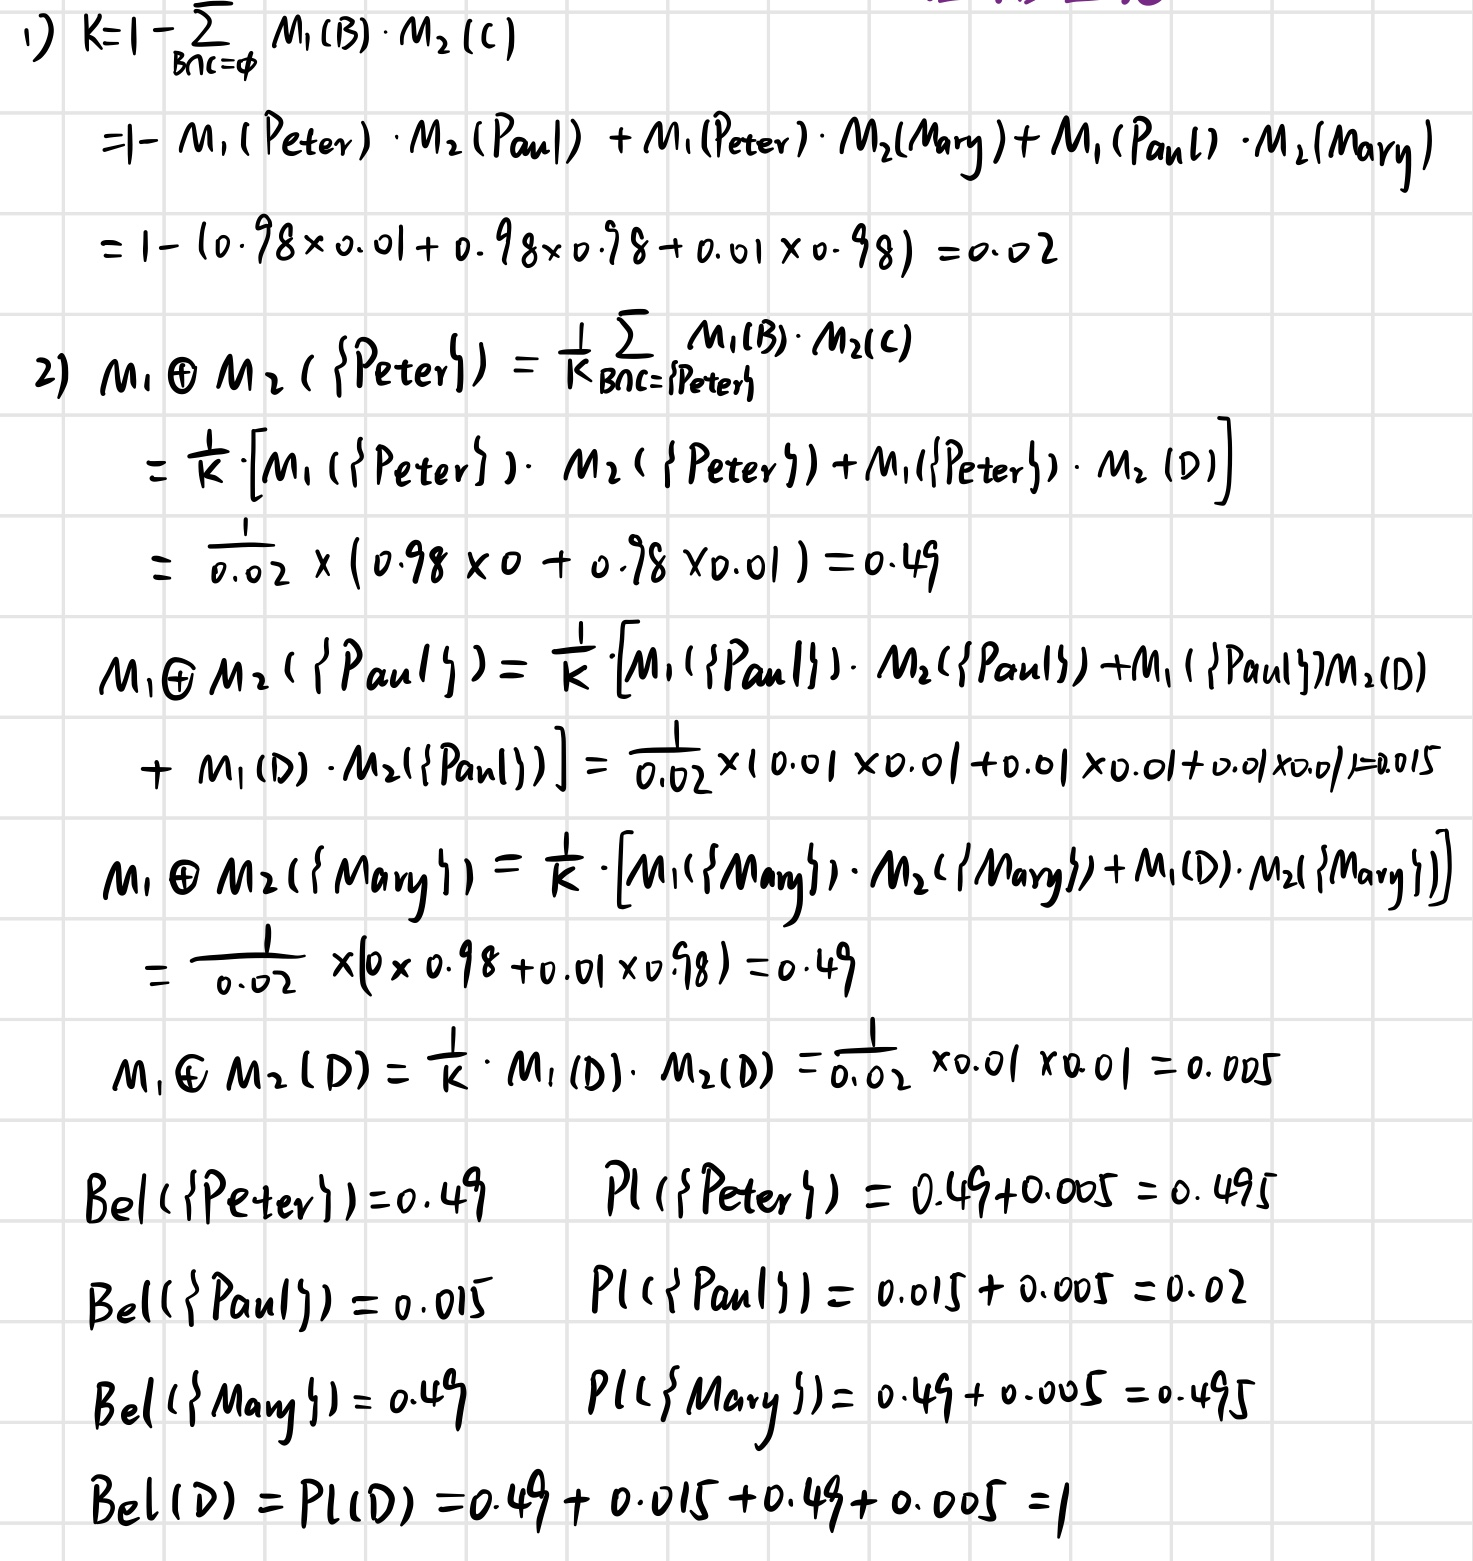 1) K=1-∑_{B∩C=ϕ} M₁(B)·M₂(C)
=1- M₁(Peter)·M₂(Paul) + M₁(Peter)·M₂(Mary)+M₁(Paul)·M₂(Mary)
= 1-(0.98×0.01+0.98×0.98+0.01×0.98) =0.02
2) M₁⊕M₂({Peter}) = 1/K ∑_{B∩C={Peter}} M₁(B)·M₂(C)
= 1/K·[M₁({Peter})·M₂({Peter})+M₁({Peter})·M₂(D)]
= 1/0.02 ×(0.98×0+0.98×0.01)=0.49
M₁⊕M₂({Paul})= 1/K·[M₁({Paul})·M₂({Paul})+M₁({Paul})M₂(D)
+ M₁(D)·M₂({Paul})] = 1/0.02 ×(0.01×0.01+0.01×0.01+0.01×0.01)=0.015
M₁⊕M₂({Mary}) = 1/K·[M₁({Mary})·M₂({Mary})+M₁(D)·M₂({Mary})]
= 1/0.02 ×(0×0.98+0.01×0.98)=0.49
M₁⊕M₂(D)= 1/K·M₁(D)·M₂(D) = 1/0.02 ×0.01×0.01 =0.005
Bel({Peter})=0.49 Pl({Peter}) = 0.49+0.005 =0.495
Bel({Paul}) = 0.015 Pl({Paul}) = 0.015+0.005 =0.02
Bel({Mary})=0.49 Pl({Mary})= 0.49+0.005=0.495
Bel(D) = Pl(D) =0.49+0.015+0.49+0.005 =1